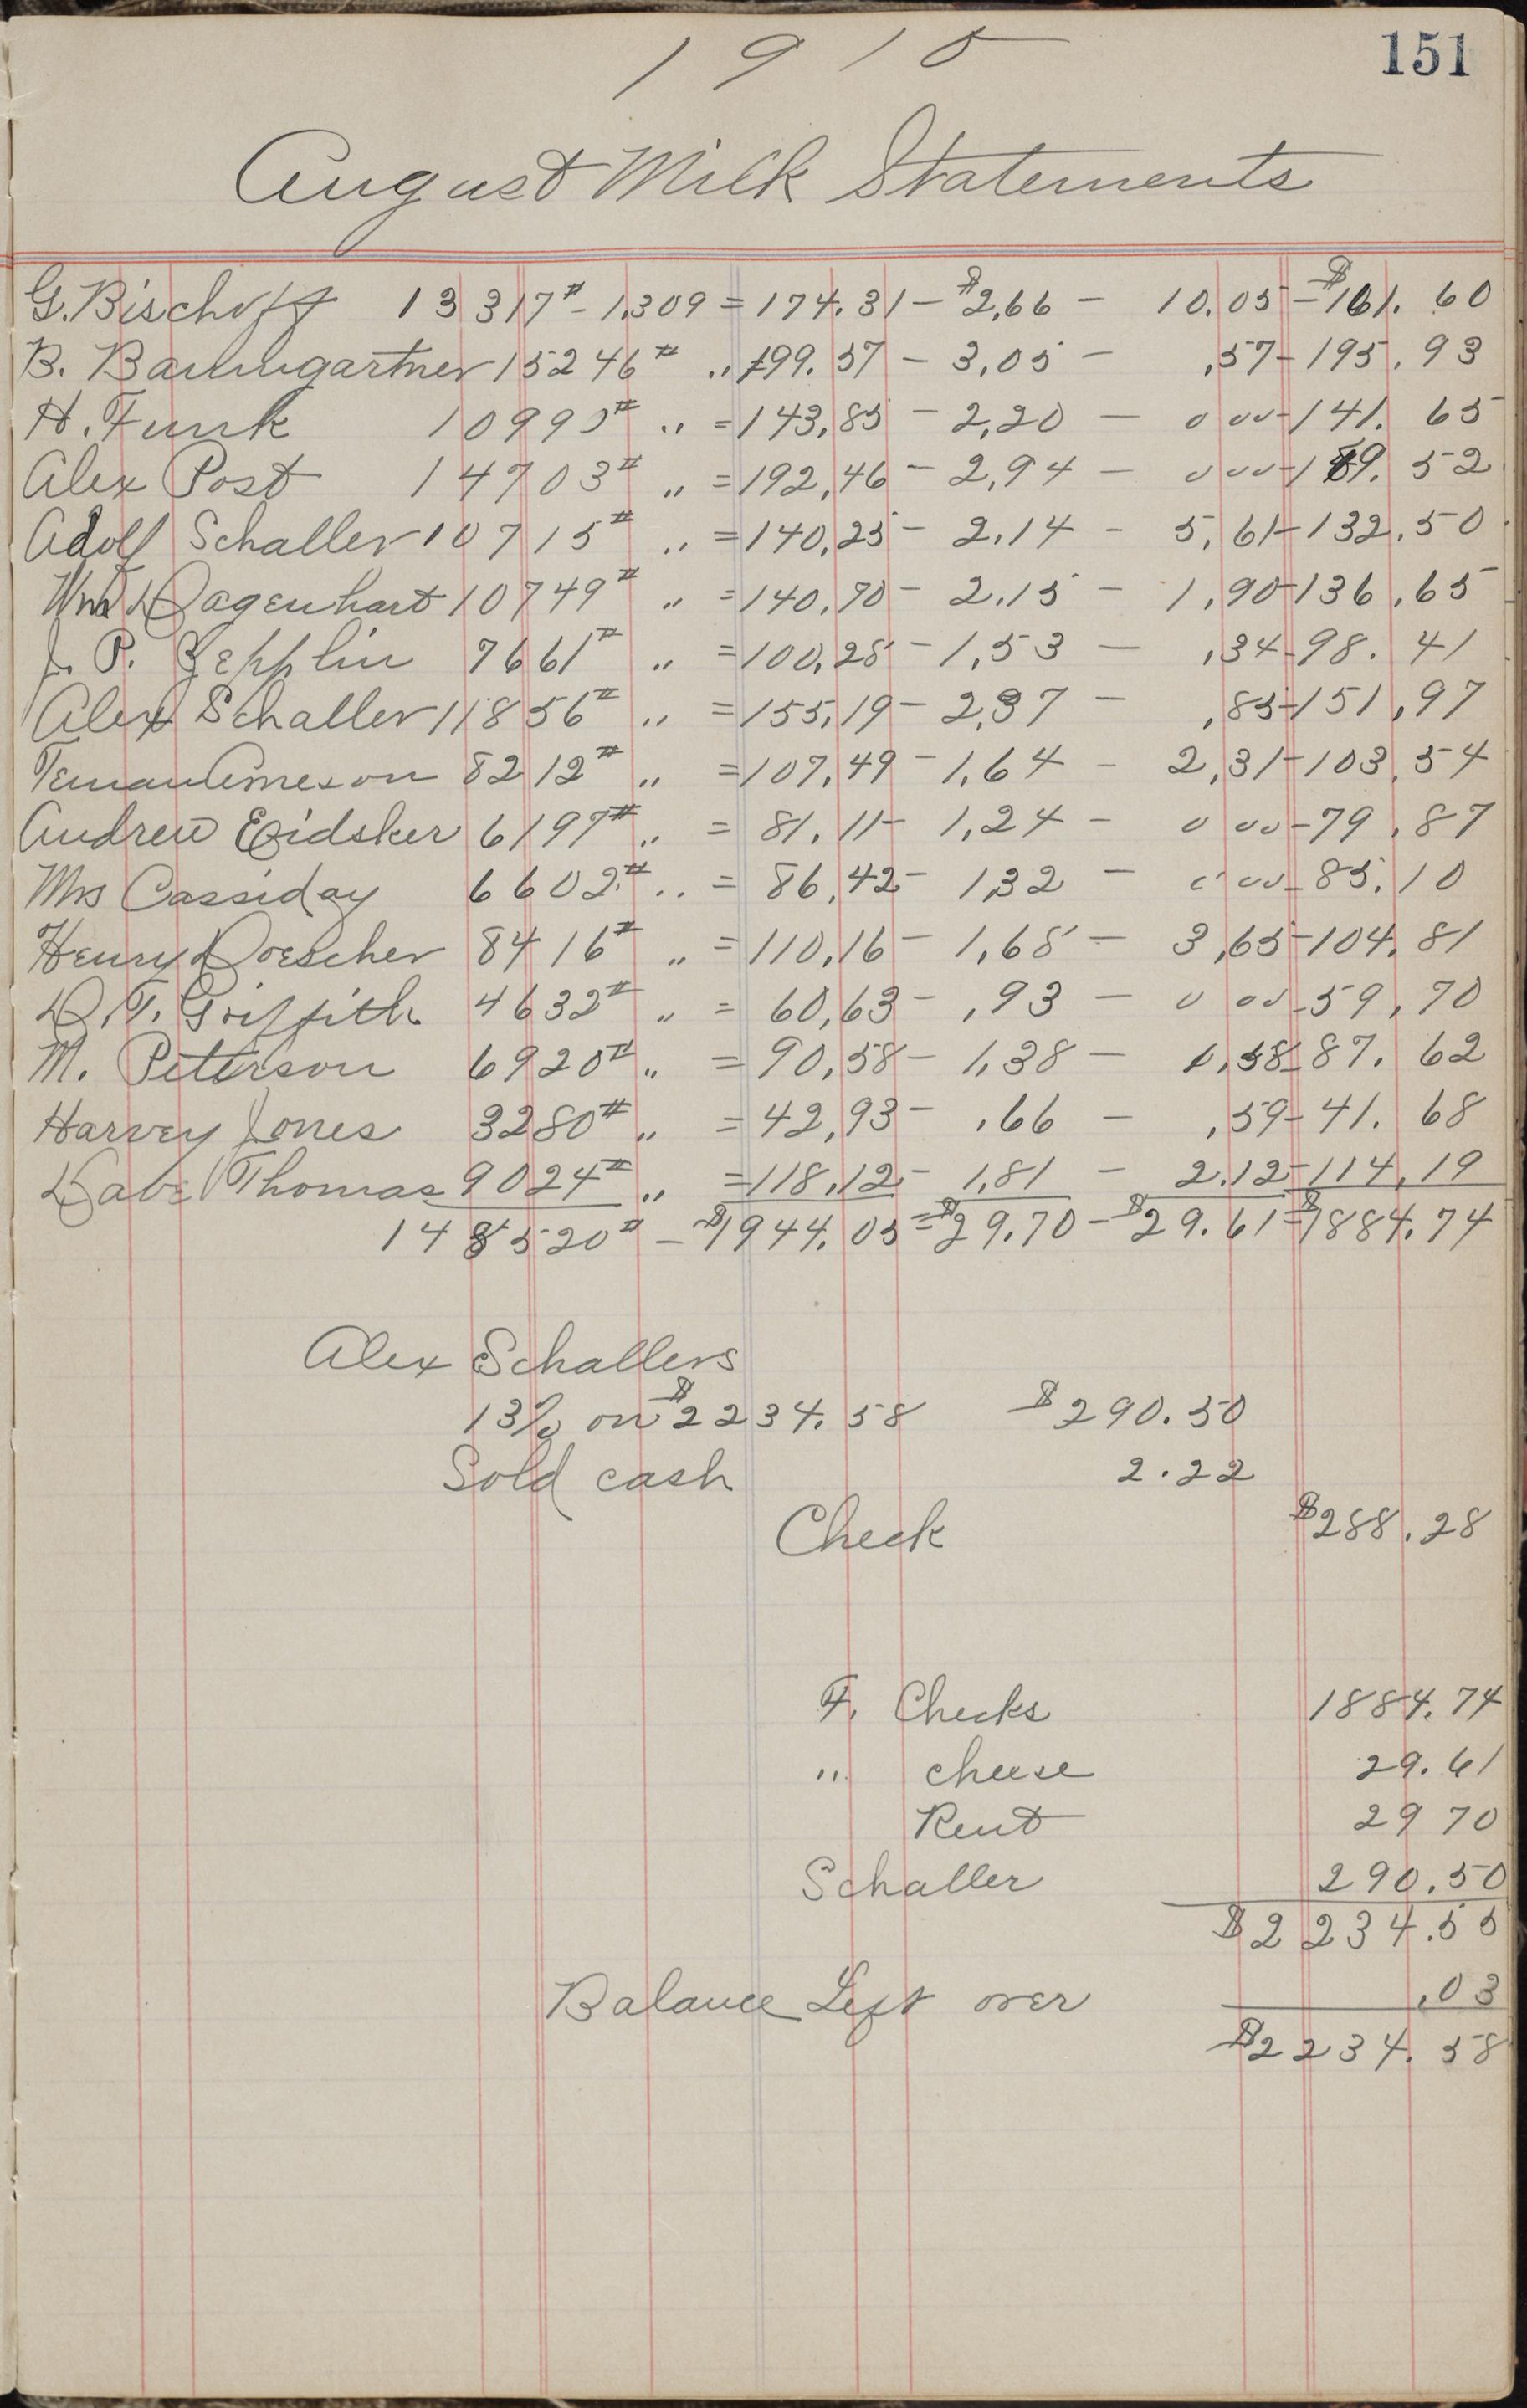 151
1915
August Milk Statements
G. Bischoff 13317# - 1.309 = 174.31 - $2.66 - 10.05 - $161.60
B. Baumgartner 15246# " 199.57 - 3.05 - .57 - 195.93
H. Funk 10990# " = 143.85 - 2.20 - 000 - 141.65
Alex Post 14703# " = 192.46 - 2.94 - 000 - 189.52
Adolf Schaller 10715# " = 140.25 - 2.14 - 5.61 - 132.50
Wm Dagenhart 10749# " = 140.70 - 2.15 - 1.90 - 136.65
J. P. Zepplin 7661# " = 100.28 - 1.53 - .34 - 98.41
Alex Schaller 11856# " = 155.19 - 2.37 - .85 - 151.97
8212# " = 107.49 - 1.64 - 2.31 - 103.54
Andrew Eidsker 6197# " = 81.11 - 1.24 - 000 - 79.87
Mrs Cassiday 6602# " = 86.42 - 1.32 - 000 - 85.10
Henry Doescher 8416# " = 110.16 - 1.68 - 3.65 - 104.81
D. T. Griffith 4632# " = 60.63 - .93 - 000 - 59.70
M. Peterson 6920# " = 90.58 - 1.38 - 1.58 - 87.62
Harvey Jones 3280# " = 42.93 - .66 - .59 - 41.68
Dave Thomas 9024# " = 118.12 - 1.81 - 2.12 - 114.19
148520# - $1944.05 = $29.70 - $29.61 = $1884.74
Alex Schallers
13% on $2234.58 $290.50
Sold cash 2.22
Check $288.28
F. Checks 1884.74
" cheese 29.61
Rent 29 70
Schaller 290.50
$2234.55
Balance Left over .03
$2234.58